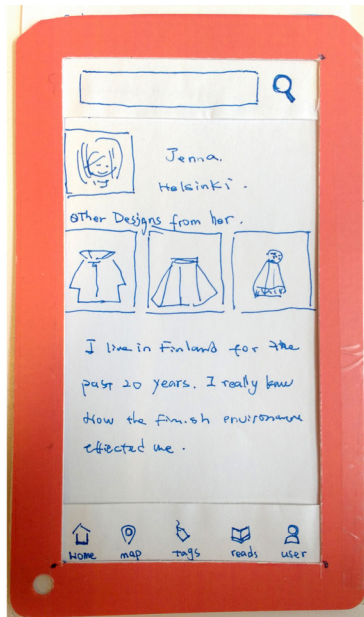 Jenna.
Helsinki.
Other Designs from her.
I live in Finland for the
past 20 years. I really know
How the finish environment
effected me.
Home map tags reads user